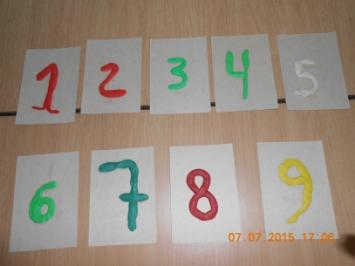 1 2 3 4 5
6 7 8 9
07.07.2015 17:06